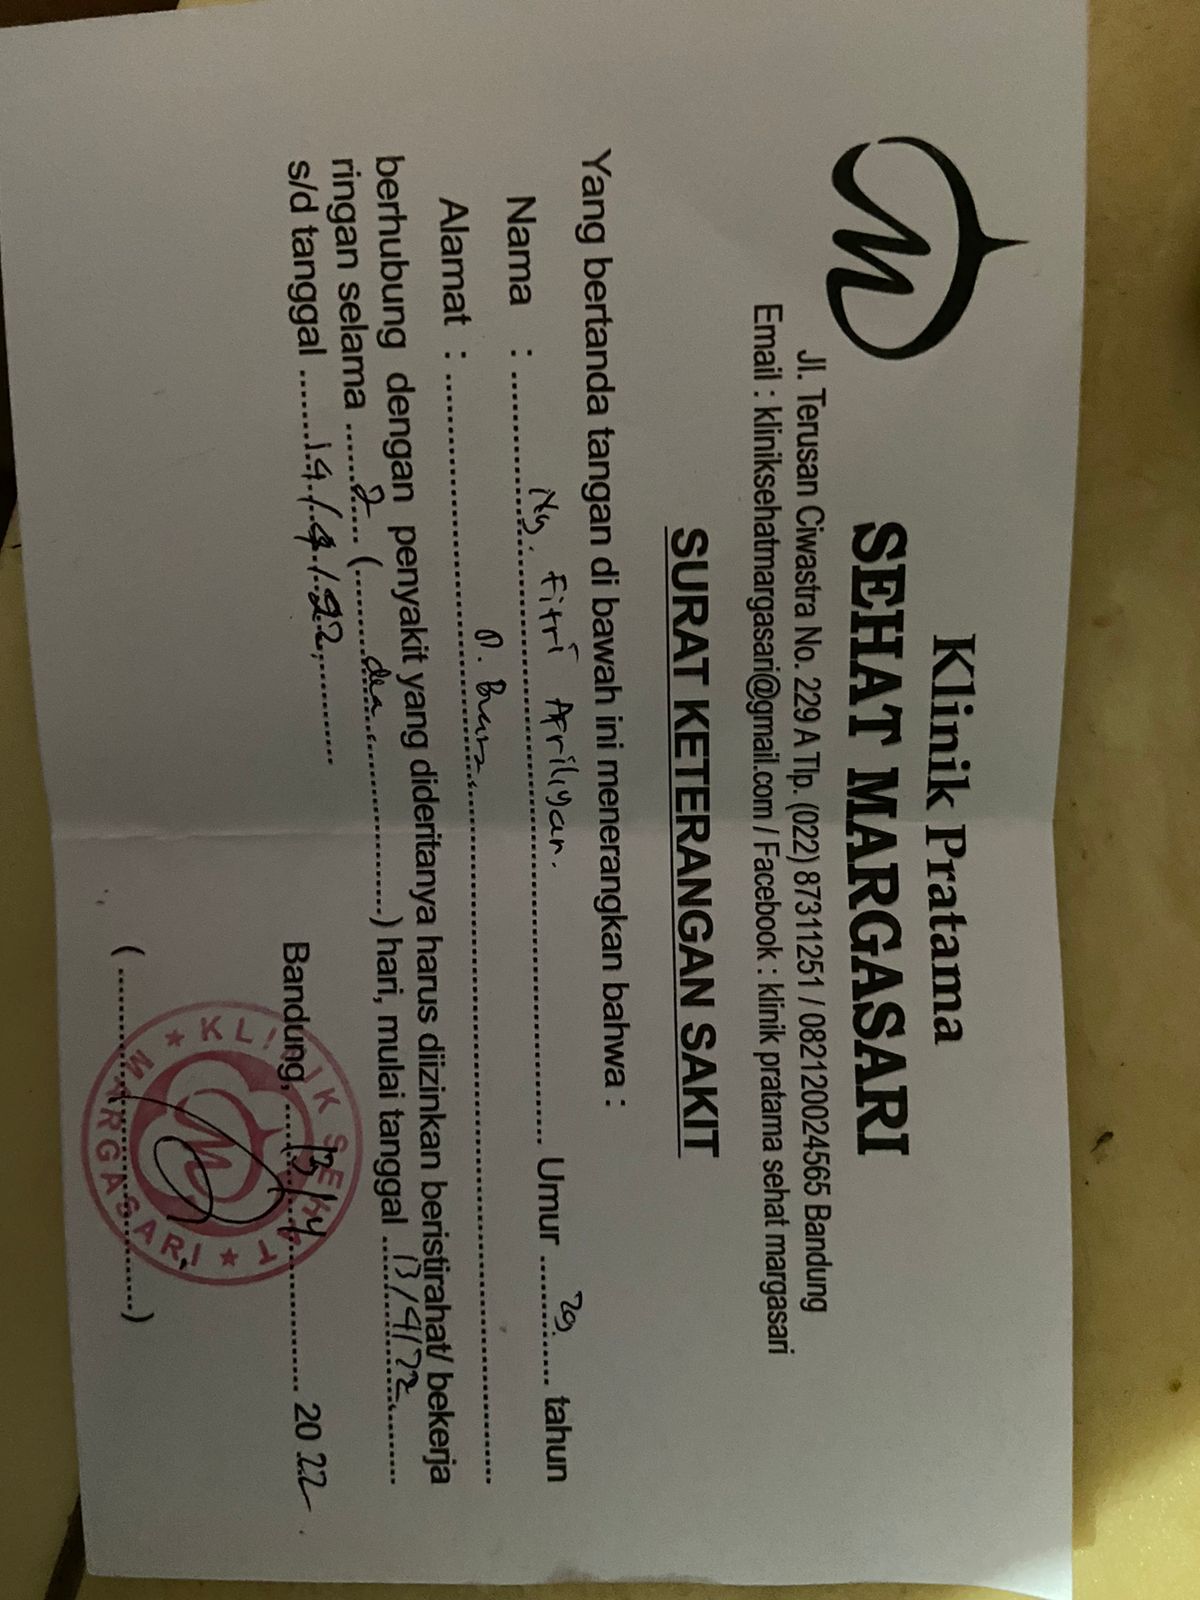 Klinik Pratama
SEHAT MARGASARI
Jl. Terusan Ciwastra No. 229 A Tlp. (022) 87311251 / 082120024565 Bandung
Email : kliniksehatmargasari@gmail.com / Facebook : klinik pratama sehat margasari
SURAT KETERANGAN SAKIT
Yang bertanda tangan di bawah ini menerangkan bahwa :
Nama : ........... Ny. Fitri Apriliyan. ........... Umur ........... 29 ........... tahun
Alamat : ...........
berhubung dengan penyakit yang dideritanya harus diizinkan beristirahat/ bekerja
ringan selama ...... 2 ..... ( ......... dua ............ ) hari, mulai tanggal ..... 13/4/22 ........
s/d tanggal ........ 14/4/22 ............
Bandung, ..... 13/4 .............. 2022
( ........................... )
KLINIK SEHAT
MARGASARI